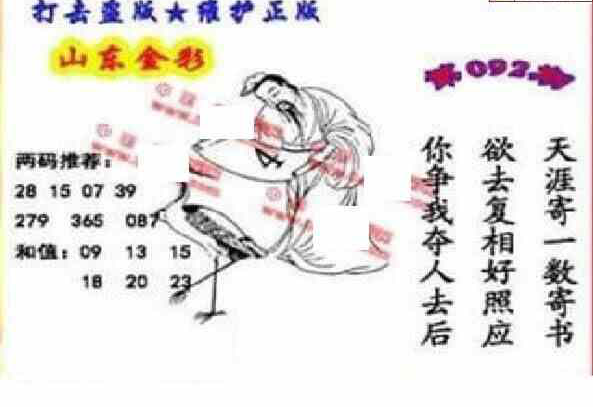 打击盗版★维护正版
山东金彩
第092期
天涯寄一数寄书
欲去复相好照应
你争我夺人去后
4
两码推荐：
28 15 07 39
279 365 087
和值：09 13 15
18 20 23